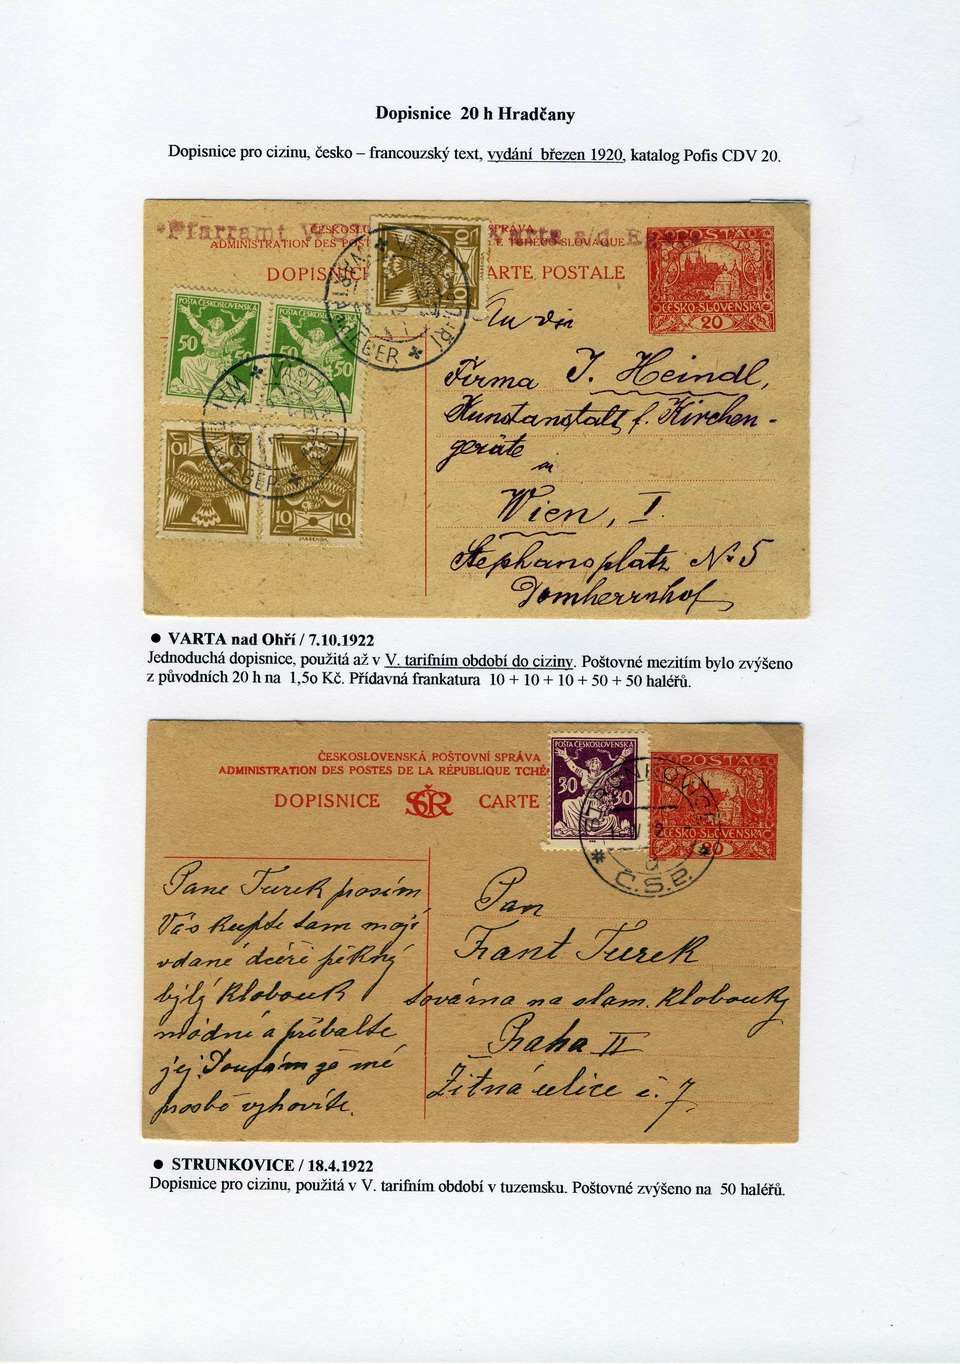 Dopisnice 20 h Hradčany
Dopisnice pro cizinu, česko – francouzský text, vydání březen 1920, katalog Pofis CDV 20.
*Pfarramt Warta a/d.
ČESKOSLO PRÁVA
ADMINISTRATION DES POST TCHÉCO-SLOVAQUE
DOPISNICE CARTE POSTALE
POSTA
ČESKO-SLOVENSKÁ
20
POŠTA ČESKOSLOVENSKÁ
50 50
POŠTA ČESKOSLOVENSKÁ
50 50
10
10
10
10 10
VARTA
KRIEGER
VARTA
KRIEGER
An die
Firma J. Heindl,
Kunstanstalt f. Kirchen-
geräte
in
Wien, I.
Stephansplatz No 5
Domherrnhof
● VARTA nad Ohří / 7.10.1922
Jednoduchá dopisnice, použitá až v V. tarifním období do ciziny. Poštovné mezitím bylo zvýšeno
z původních 20 h na 1,5o Kč. Přídavná frankatura 10 + 10 + 10 + 50 + 50 haléřů.
ČESKOSLOVENSKÁ POŠTOVNÍ SPRÁVA
ADMINISTRATION DES POSTES DE LA RÉPUBLIQUE TCHÉ
DOPISNICE ČSR CARTE
POŠTA ČESKOSLOVENSKÁ
30 30
POSTA
ČESKO-SLOVENSKÁ
20
STRUNKOVICE
Č.S.P.
Pane Turek prosím
Vás kupte tam mojí
vdané dceři pěkný
bílý klobouk
módní a přibalte
jej. Doufám že mé
prosbě vyhovíte.
Pan
Frant Turek
továrna na slam. klobouky
Praha II
Žitná ulice č. 7.
● STRUNKOVICE / 18.4.1922
Dopisnice pro cizinu, použitá v V. tarifním období v tuzemsku. Poštovné zvýšeno na 50 haléřů.